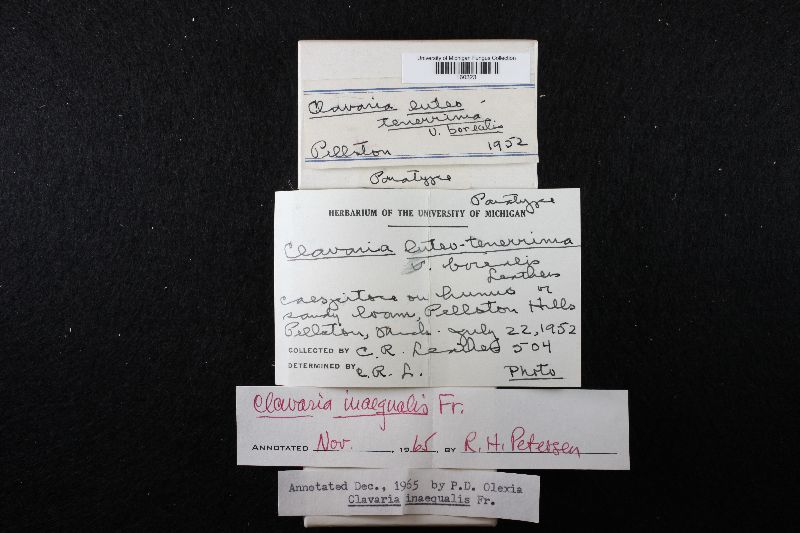 University of Michigan Fungus Collection
60323
Clavaria luteo-
tenerrima
v. borealis
Pellston 1952
Paratype
Paratype
HERBARIUM OF THE UNIVERSITY OF MICHIGAN
Clavaria luteo-tenerrima
v. borealis
Leathers
caespitose on humus or
sandy loam, Pellston Hills
Pellston, Mich. July 22, 1952
COLLECTED BY C. R. Leathers 504
DETERMINED BY C. R. L. Photo
Clavaria inaequalis Fr.
ANNOTATED Nov., 1965, BY R. H. Petersen
Annotated Dec., 1965 by P.D. Olexia
Clavaria inaequalis Fr.